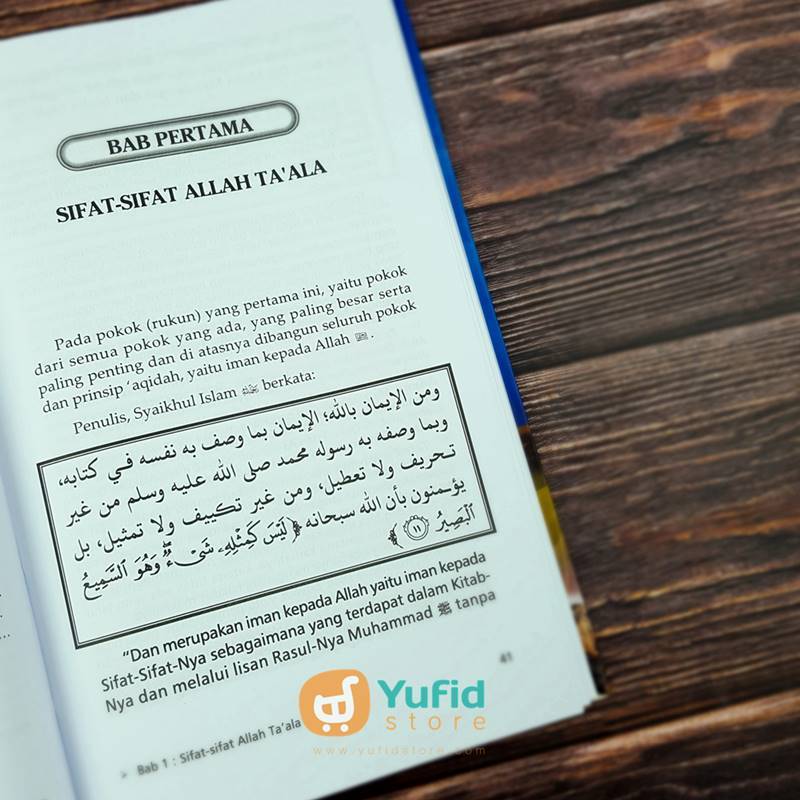 BAB PERTAMA
SIFAT-SIFAT ALLAH TA'ALA
Pada pokok (rukun) yang pertama ini, yaitu pokok
dari semua pokok yang ada, yang paling besar serta
paling penting dan di atasnya dibangun seluruh pokok
dan prinsip 'aqidah, yaitu iman kepada Allah .
Penulis, Syaikhul Islam berkata:
ومن الإيمان بالله؛ الإيمان بما وصف به نفسه في كتابه،
وبما وصفه به رسوله محمد صلى الله عليه وسلم من غير
تحريف ولا تعطيل، ومن غير تكييف ولا تمثيل، بل
يؤمنون بأن الله سبحانه ﴿لَيْسَ كَمِثْلِهِۦ شَىْءٌ ۖ وَهُوَ ٱلسَّمِيعُ
ٱلْبَصِيرُ ١١﴾
"Dan merupakan iman kepada Allah yaitu iman kepada
Sifat-Sifat-Nya sebagaimana yang terdapat dalam Kitab-
Nya dan melalui lisan Rasul-Nya Muhammad ﷺ tanpa
41
Bab 1 : Sifat-sifat Allah Ta'ala
Yufid
store
www.yufidstore.com